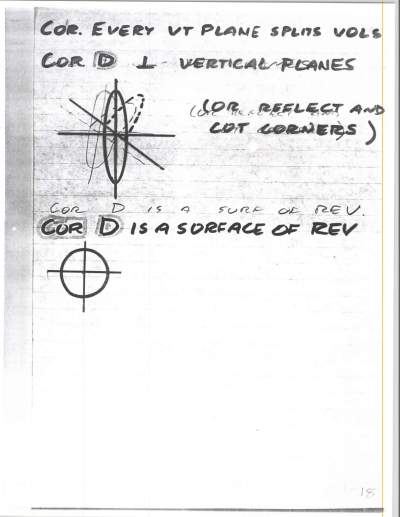 COR. EVERY VT PLANE SPLITS VOLS
COR D ⊥ VERTICAL PLANES
(OR REFLECT AND
CUT CORNERS)
COR D IS A SURF OF REV.
COR D IS A SURFACE OF REV
18